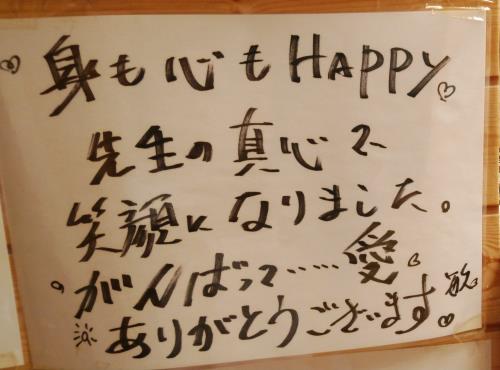 身も心もHAPPY
先生の真心で
笑顔になりました。
がんばって……愛
ありがとうございます。敏